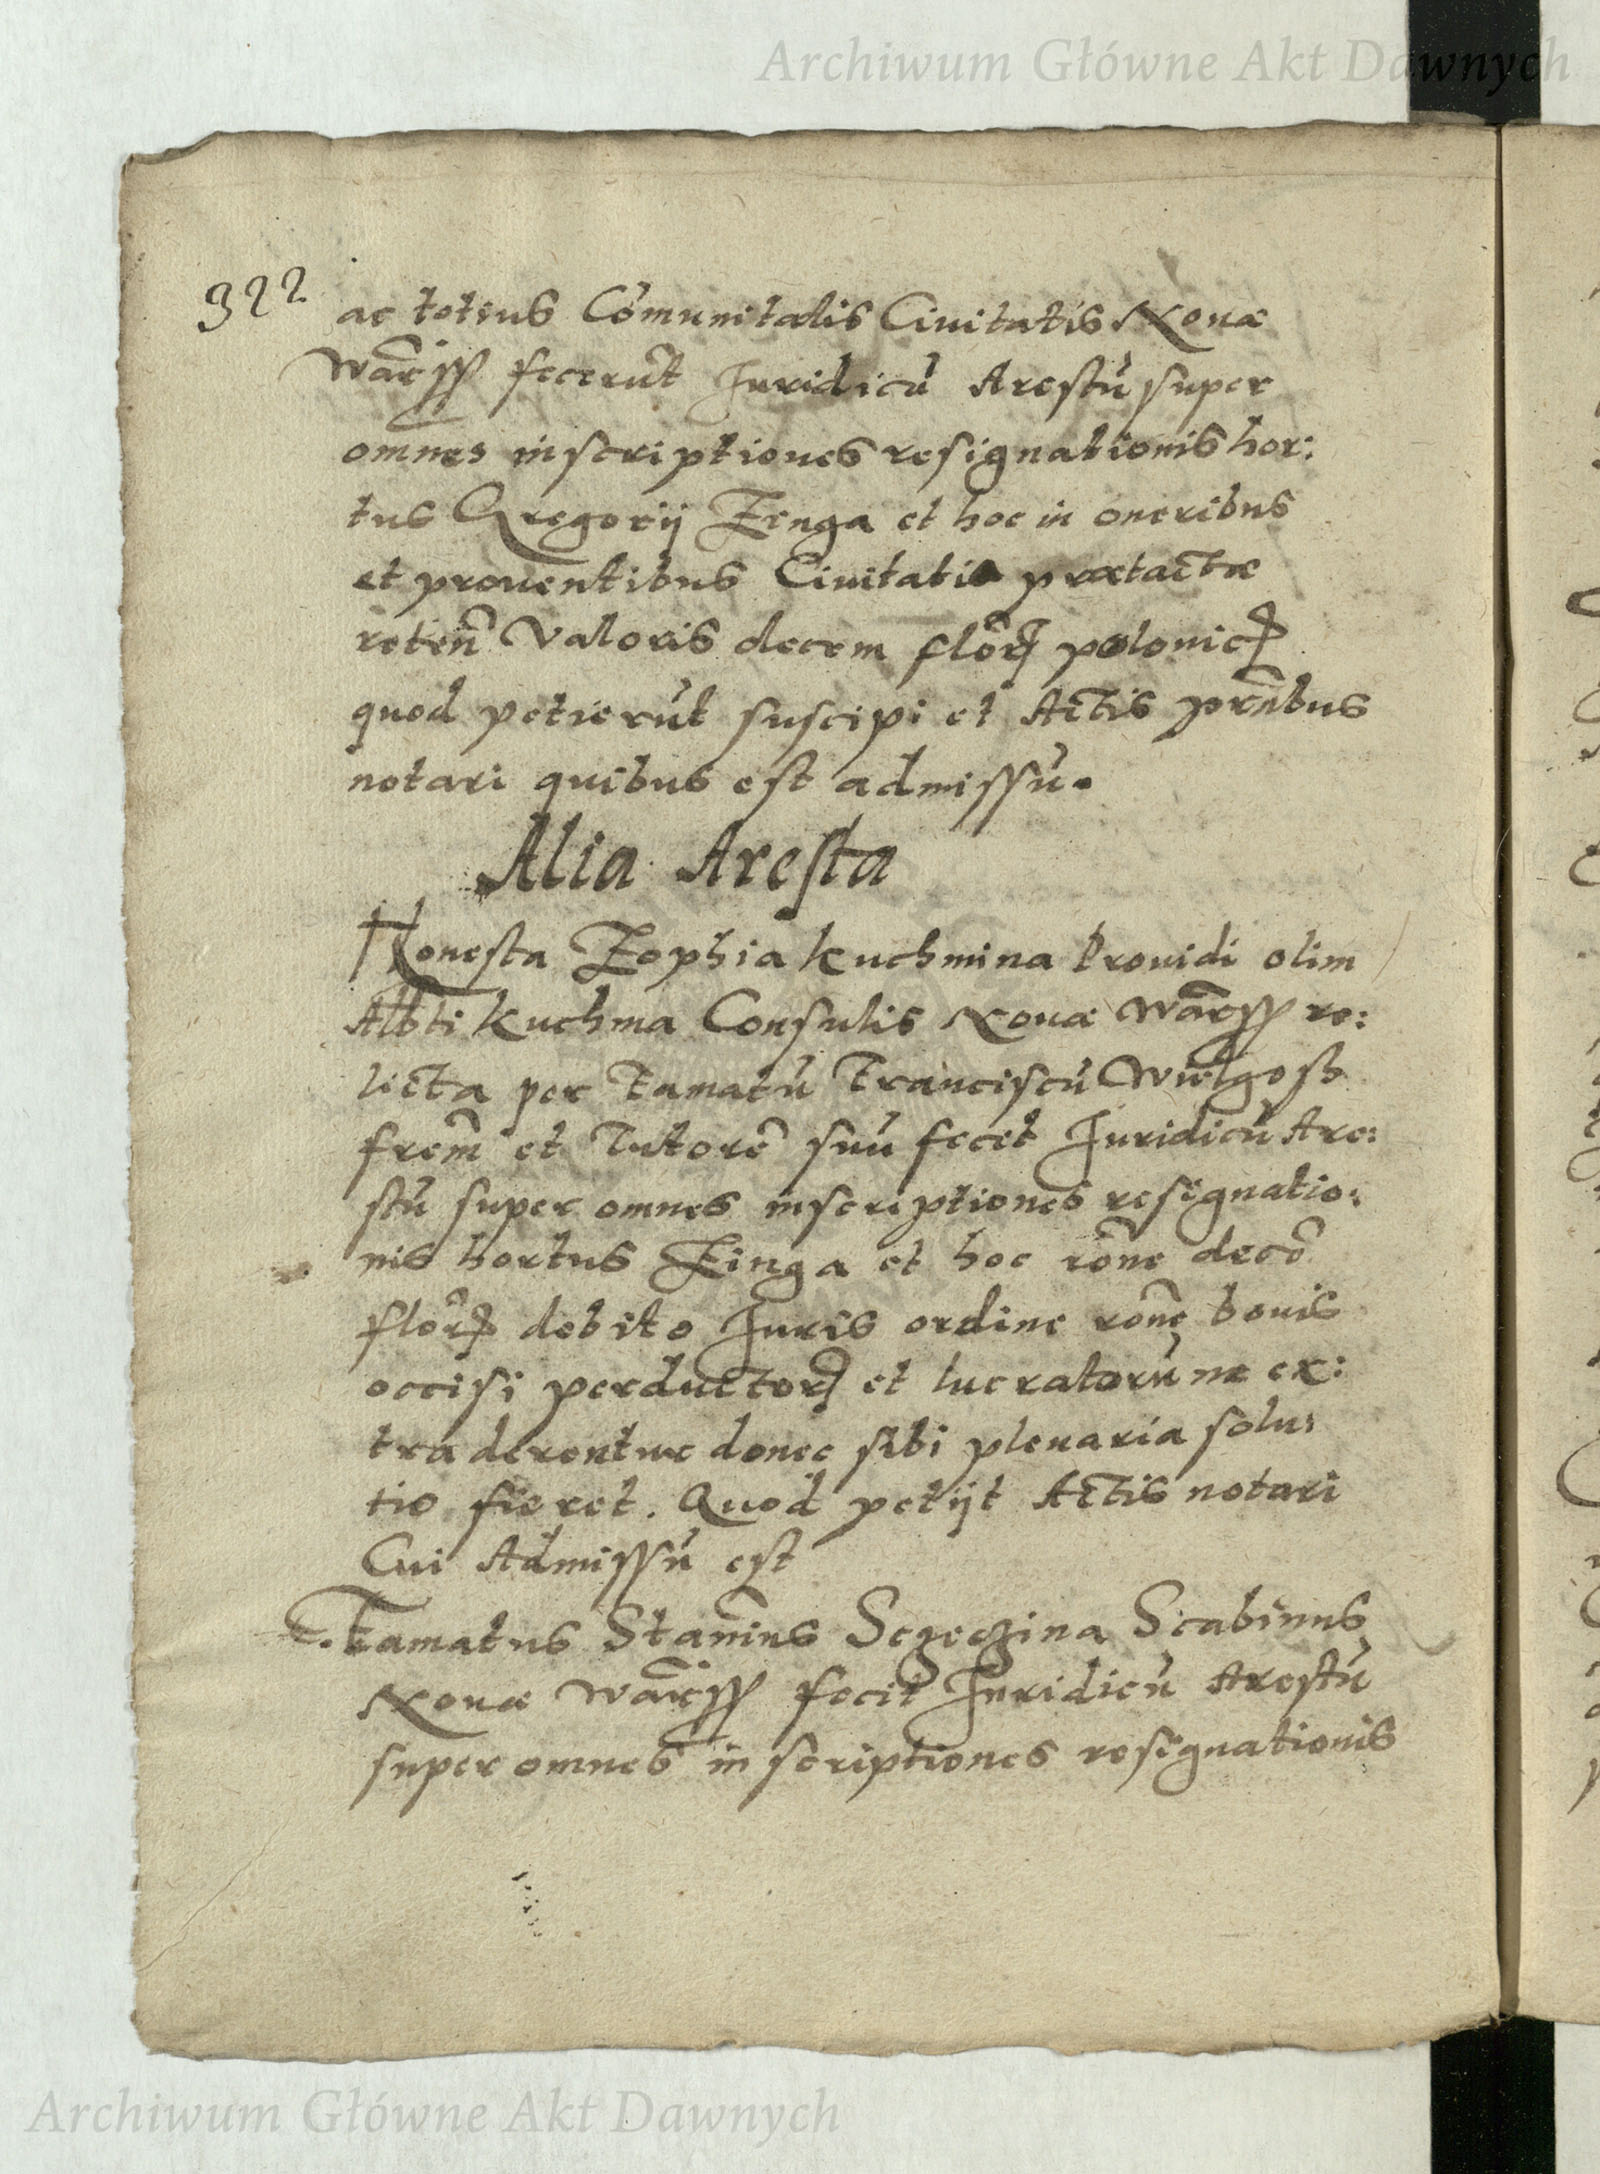 Archiwum Główne Akt Dawnych
322
ac totius Com̃unitatis Ciuitatis Nouæ
Warss fecerũt Juridicũ Arestũ super
omnes inscriptiones resignationis hor:
tus Gregorij Zenga et hoc in oneribus
et prouentibus Ciuitatis prætactæ
reten̄ Valoris decem flor̄ polonic
quod petierũt suscipi et Actis prñtibus
notari quibus est admissũ.
Alia Aresta
Honesta Zophia Kuchmina Prouidi olim
Albti Kuchma Consulis Nouæ Warss re:
licta per Famatũ Franciscũ Wielgosz
frem̄ et Tutorē suũ fecit Juridicũ Are:
stũ super omnes inscriptiones resignatio:
nis hortus Zinga et hoc rõne decē
flor̄ debito Juris ordine rõne bouis
occisi perductor et lucratorũ ne ex:
traderentur donec sibi plenaria solu:
tio fieret. Quod petijt Actis notari
Cui Admissũ est
Famatus Stan̄ius Sczeczina Scabinus
Nouæ Warss fecit Juridicũ Arestũ
super omnes inscriptiones resignationis
Archiwum Główne Akt Dawnych